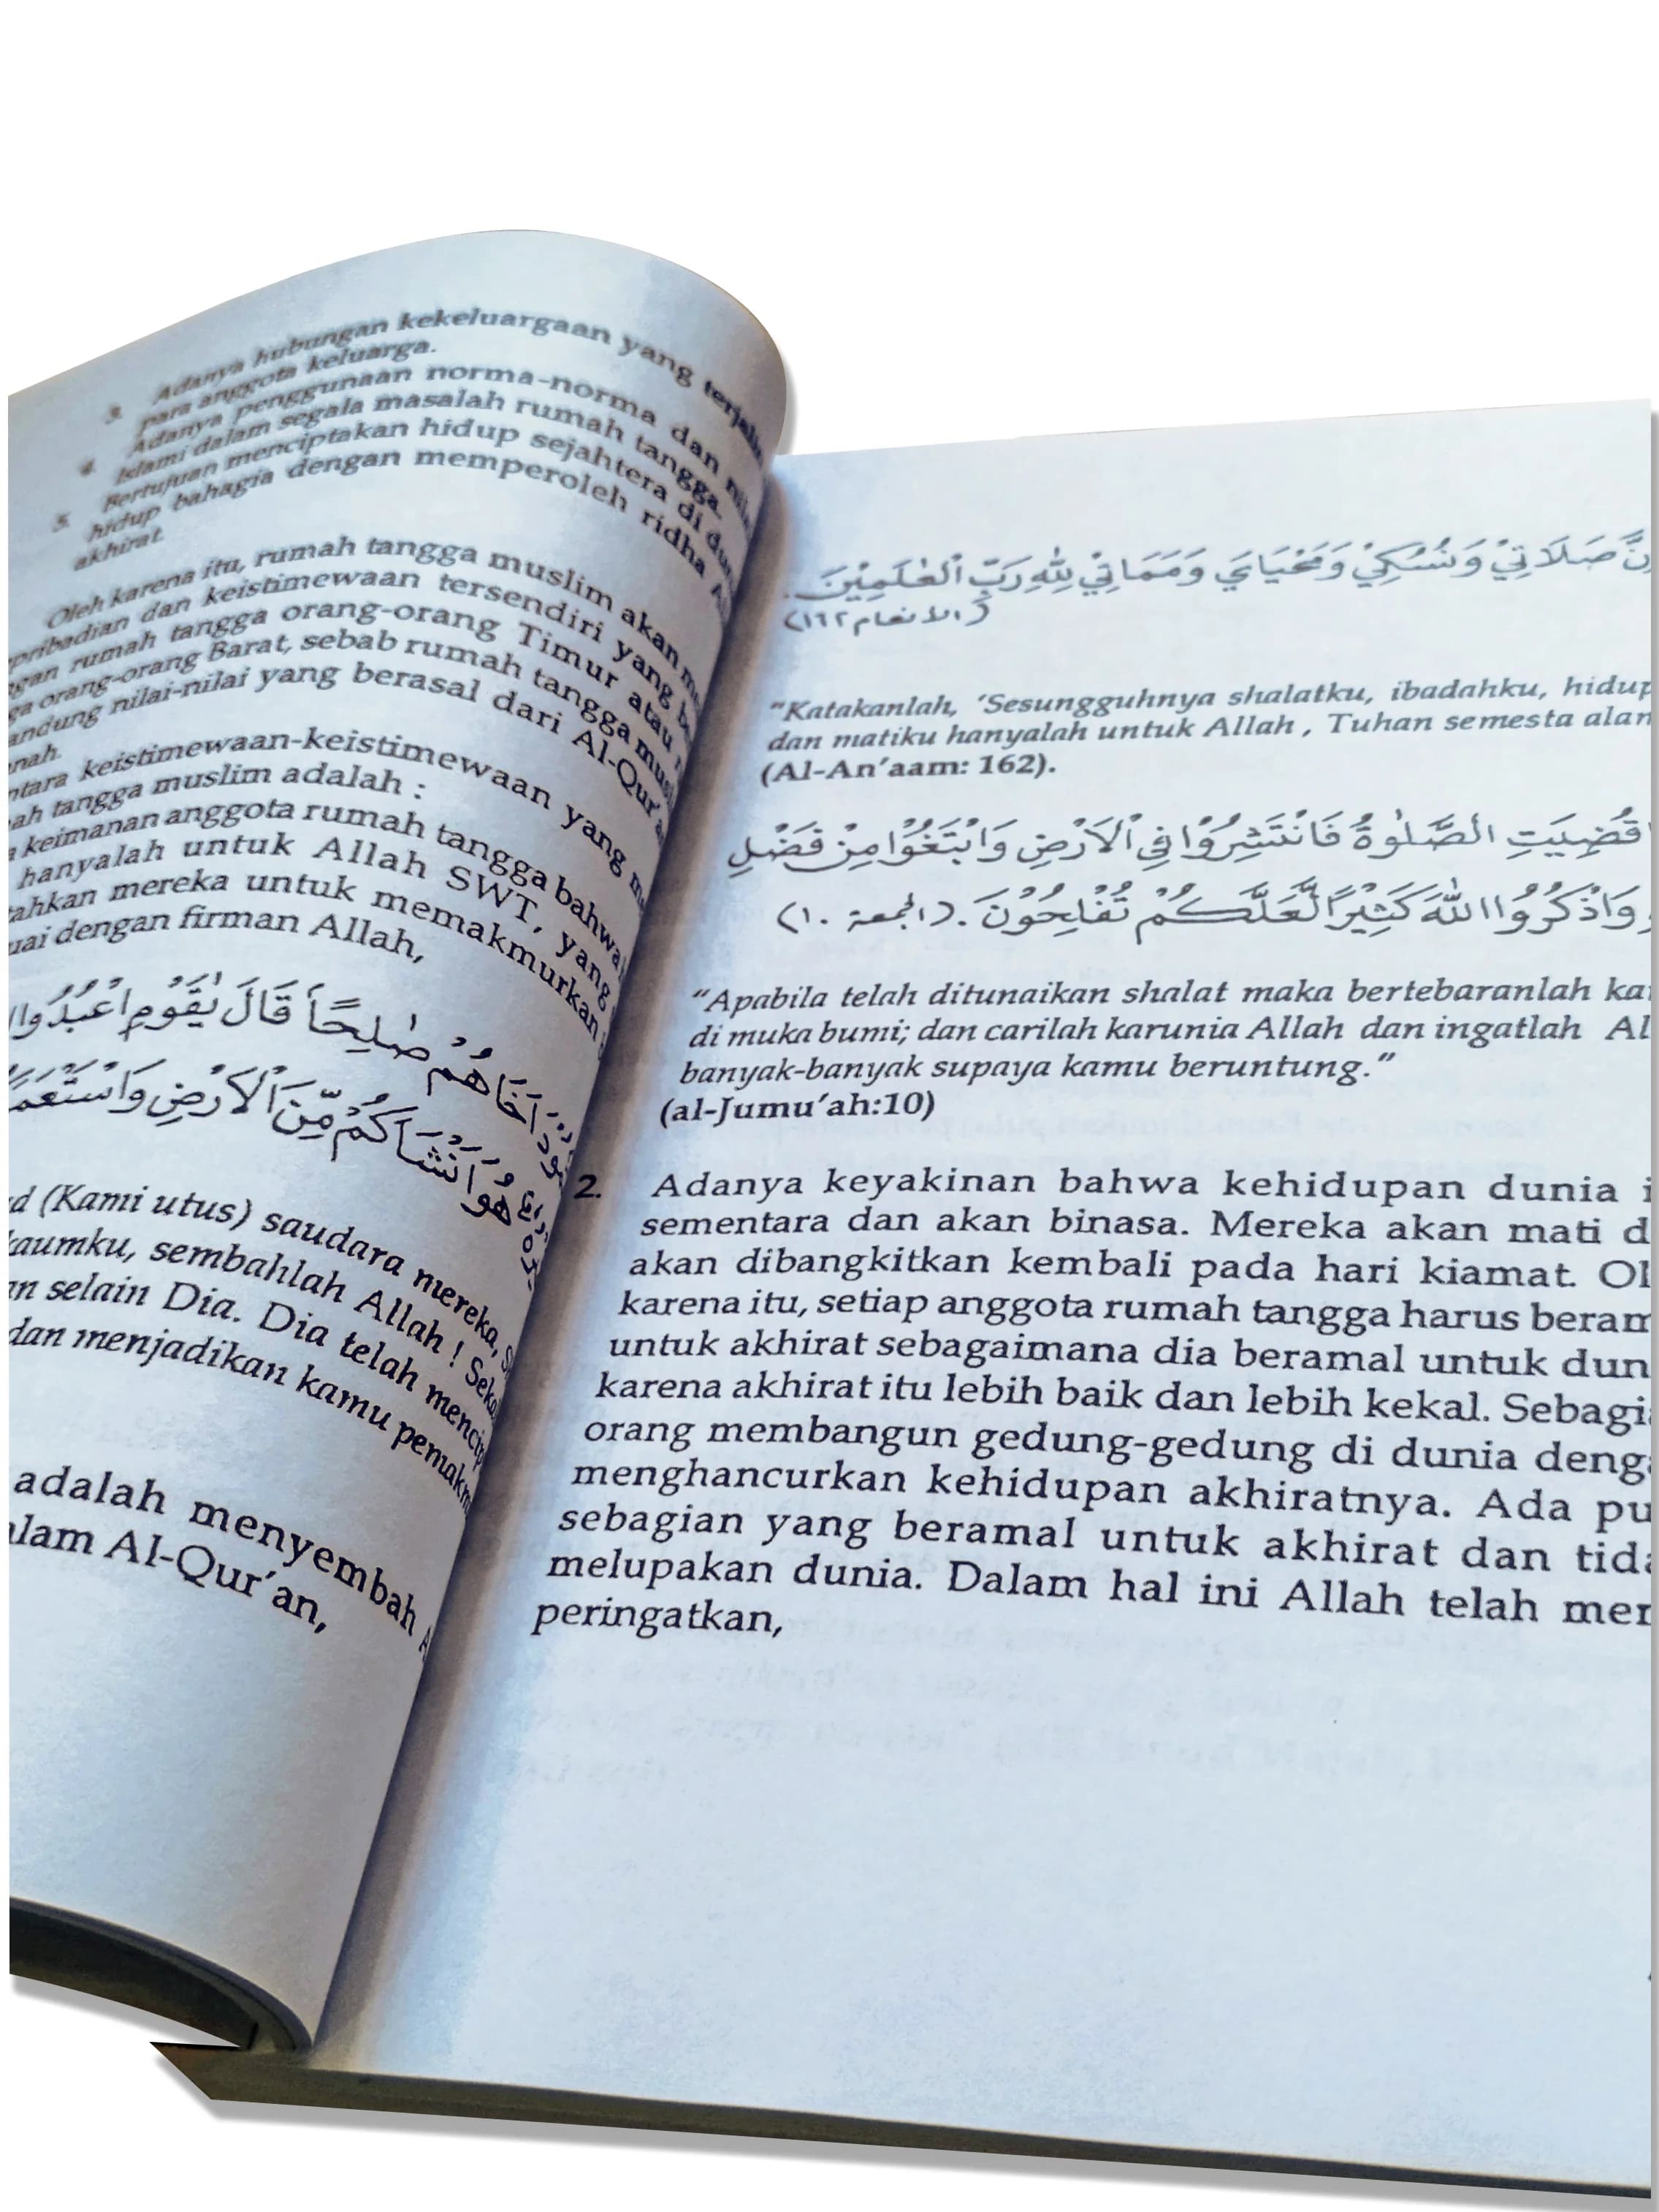 3. Adanya hubungan kekeluargaan yang
para anggota keluarga.
4. Adanya penggunaan norma-norma dan
Islami dalam segala masalah rumah tangga.
5. Bertujuan menciptakan hidup sejahtera di
hidup bahagia dengan memperoleh ridha
akhirat.
Oleh karena itu, rumah tangga muslim akan
pribadian dan keistimewaan tersendiri yang
rumah tangga orang-orang Timur atau
orang-orang Barat, sebab rumah tangga
nilai-nilai yang berasal dari Al-Qur'
keistimewaan-keistimewaan yang
tangga muslim adalah :
keimanan anggota rumah tangga
hanyalah untuk Allah SWT, yang
mereka untuk memakmurkan
dengan firman Allah,
أَخَاهُمْ صٰلِحًا قَالَ يٰقَوْمِ اعْبُدُوا
هُوَ اَنْشَاَكُمْ مِّنَ الْاَرْضِ
(Kami utus) saudara mereka,
kaumku, sembahlah Allah !
selain Dia. Dia telah
dan menjadikan kamu
adalah menyembah
Al-Qur'an,
صَلَاتِيْ وَنُسُكِيْ وَمَحْيَايَ وَمَمَاتِيْ لِلّٰهِ رَبِّ الْعٰلَمِيْنَ.
(الانعام ١٦٢)
"Katakanlah, 'Sesungguhnya shalatku, ibadahku,
dan matiku hanyalah untuk Allah , Tuhan semesta
(Al-An'aam: 162).
قُضِيَتِ الصَّلٰوةُ فَانْتَشِرُوْا فِي الْاَرْضِ وَابْتَغُوْا مِنْ فَضْلِ
وَاذْكُرُوا اللّٰهَ كَثِيْرًا لَّعَلَّكُمْ تُفْلِحُوْنَ. (الجمعة ١٠)
"Apabila telah ditunaikan shalat maka bertebaranlah
di muka bumi; dan carilah karunia Allah dan ingatlah
banyak-banyak supaya kamu beruntung."
(al-Jumu'ah:10)
2. Adanya keyakinan bahwa kehidupan dunia
sementara dan akan binasa. Mereka akan mati
akan dibangkitkan kembali pada hari kiamat.
karena itu, setiap anggota rumah tangga harus
untuk akhirat sebagaimana dia beramal untuk
karena akhirat itu lebih baik dan lebih kekal.
orang membangun gedung-gedung di dunia
menghancurkan kehidupan akhiratnya. Ada
sebagian yang beramal untuk akhirat dan
melupakan dunia. Dalam hal ini Allah telah
peringatkan,